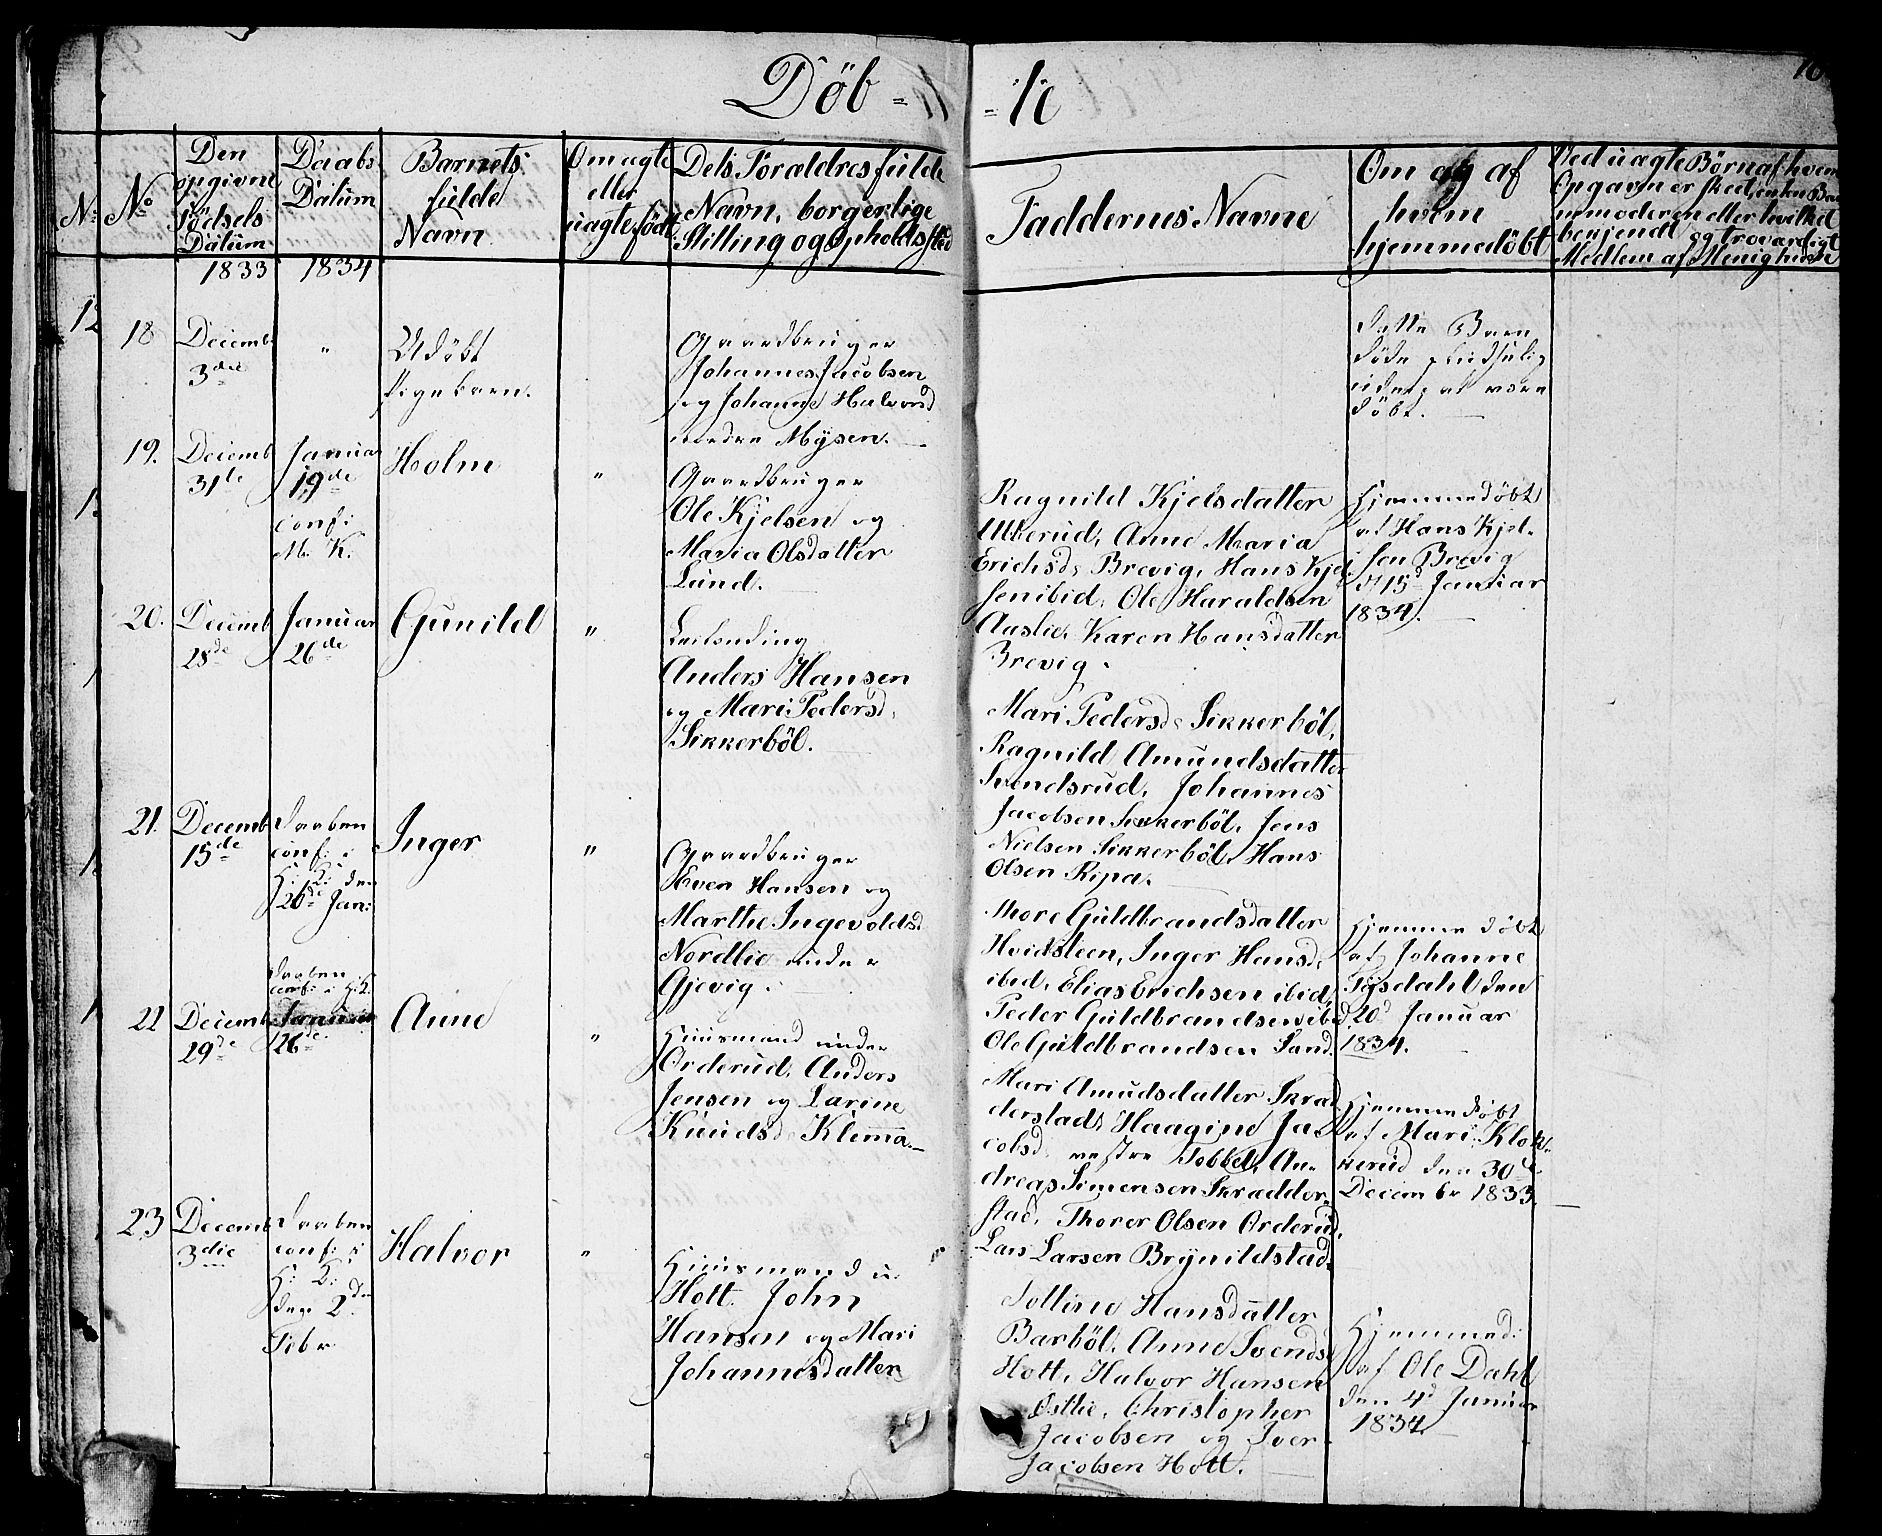 Döb = = te
16
N.
No
Den
opgivne
Födsels
Datum
1833
Daabs
Datum
1834
Barnets
fulde
Navn
Om ægte
eller
uægte født
Dets Forældres fulde
Navn, borgerlige
Stilling og Opholdssted
Faddernes Navne
Om og af
hvem
hjemmedöbt
Ved uægte Börn af hvem
Opgaven er skeed, enten Bar
nemoderen eller hvilket
bekjendt og troværdigt
Medlem af Menigheden
12
18
Decemb.
3die
"
Udöbt
Pigebarn.
Gaardbruger
Johannes Jacobsen
og Johanne Halvorsd
nedre Mysen.
Dette Barn
döde pludselig
uden at være
döbt.
19.
Decemb
31te
Januar
19de
conf:
M. K.
Holm
"
Gaardbruger
Ole Kjelsen og
Maria Olsdatter
Lund.
Ragnild Kjelsdatter
Ulkerud, Anne Maria
Erichsd. Brevig, Hans Kjel
sen ibid, Ole Haraldsen
Aaslie, Karen Hansdatter
Brevig.
Hjemmedöbt
af Hans Kjel-
sen Brevig
d. 15d Januar
1834.
20.
Decemb
28de
Januar
26de
Gunild
"
Leilending
Anders Hansen
og Mari Pedersd.
Sikkerböl.
Mari Pedersd. Sikkerböl,
Ragnild Amundsdatter
Svendsrud, Johannes
Jacobsen Sikkerböl, Jens
Nielsen Sikkerböl, Hans
Olsen Ripa.
21.
Decemb
15de
Daaben
conf: i
H: K: den
26de Jan:
Inger
"
Gaardbruger
Even Hansen og
Marthe Ingevoldsd
Nordlie under
Gjevig.
Thore Guldbrandsdatter
Hvidsteen, Inger Hansd.
ibid, Elias Erichsen ibid,
Peder Guldbrandsen ibid
Ole Guldbrandsen Sand.
Hjemmedöbt
af Johanne
Tigsdahl den
20d Januar
1834.
22
Decemb
29de
Daaben
conf: i H: K:
Januar
26de
Anne
"
Huusmand under
Orderud, Anders
Jensen og Larine
Knudsd. Klemma.
Mari Amudsdatter Skræd
derstad, Haagine Ja-
cobsd. vestre Tobbel, An-
dreas Simensen Skrædder-
stad, Thorer Olsen Orderud,
Lars Larsen Brynildstad.
Hjemmedöbt
af Mari Klok-
kerud den 30te
Decembr 1833.
23
Decemb
3die
Daaben
conf: i
H: K:
den 2den
Febr
Halvor
"
Huusmand u.
Hott. John
Hansen og Mari
Johannesdatter
Hansdatter
Barböl, Anne Svendsd
Hott, Halvor Hansen
Østlie, Christopher
Jacobsen og Iver
Jacobsen Hott.
Hjemmed:
af Ole Dahl
den 4d Januar
1834